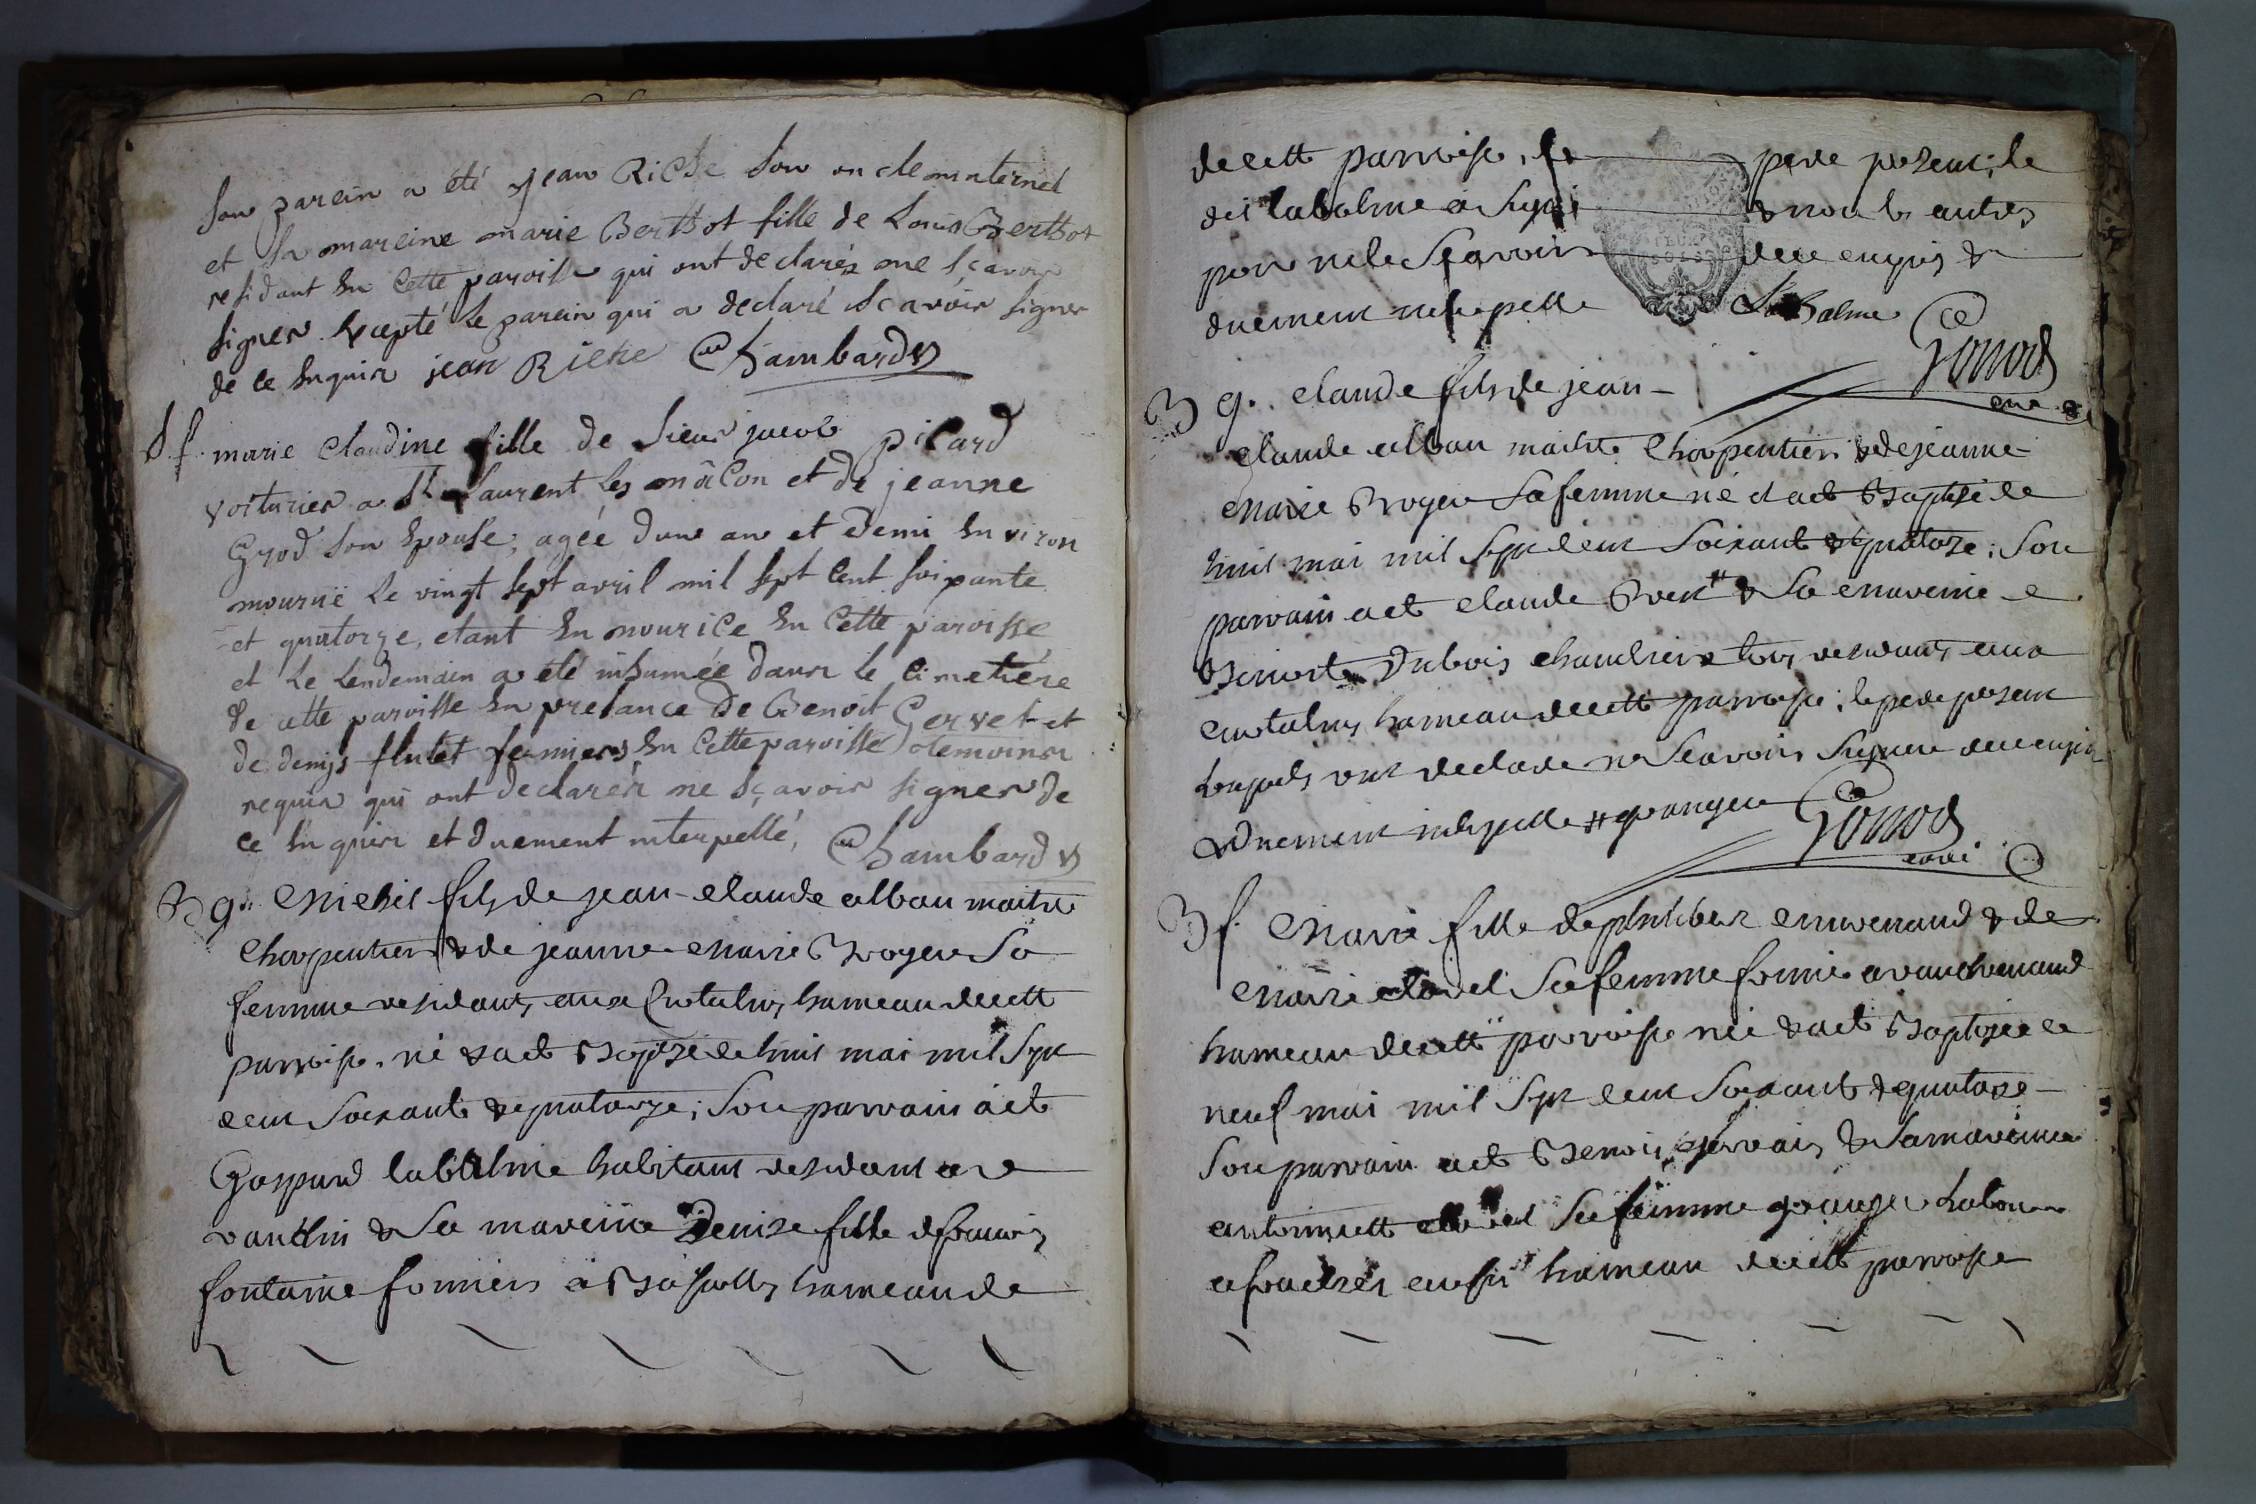 son parein a été jean Riche son oncle maternel
et sa mareine marie Berthot fille de Louis Berthot
residant en cette paroisse qui ont declarés ne sçavoir
signer excepté le parein qui a declaré sçavoir signer
de ce enquis jean Riche Chambard
d. f. marie Claudine fille de sieur jacob picard
voiturier a St Laurent les mâcon et de jeanne
Gyod son epouse, agée d'un an et demi environ
mourut le vingt sept avril mil sept cent soixante
et quatorze, etant en nourice en cette paroisse
et le lendemain a été inhumée dans le cimetiére
de cette paroisse en presance de Benoit Gervet et
de denys flutet fermiers en cette paroisse temoins
requis qui ont declarés ne sçavoir signer de
ce enquis et duement interpellé, Chambard
B g. Michel fils de jean-claude alban maitre
Charpentier & de jeanne Marie Broyer sa
femme residants aux hameau de cette
parroisse. né & a eté Baptizé le huit mai mil sept
cent soixante & quatorze; son parrain a été
Gaspard labalme habitant residant a
vanthin & sa mareine Denize fille de francois
fontaine fermier a hameau de
de cette parroisse, le pere present; le
dit labalme a signé & non les autres
pour ne le scavoir de ce enquis &
duement interpellé Labalme
Gonod
curé
B g. Claude fils de jean-
claude alban maitre Charpentier & de jeanne
Marie Broyer sa femme né & a eté Baptisé le
huit mai mil sept cent soixante & quatorze; son
parrain a eté claude # & sa mareine
Benoite Dubois tous residants aux
hameau de cette parroisse; le pere present
lesquels ont declaré ne scavoir signer de ce enquis
& duement interpellé # granger Gonod
curé
B f. Marie fille de philibert & de
Marie clavel sa femme
hameau de cette parroisse née & a eté Baptizée le
neuf mai mil sept cent soixante & quatorze
son parrain a eté Benoit gervais & sa mareine
antoinette clavel sa femme granger
aussi hameau de cette parroisse